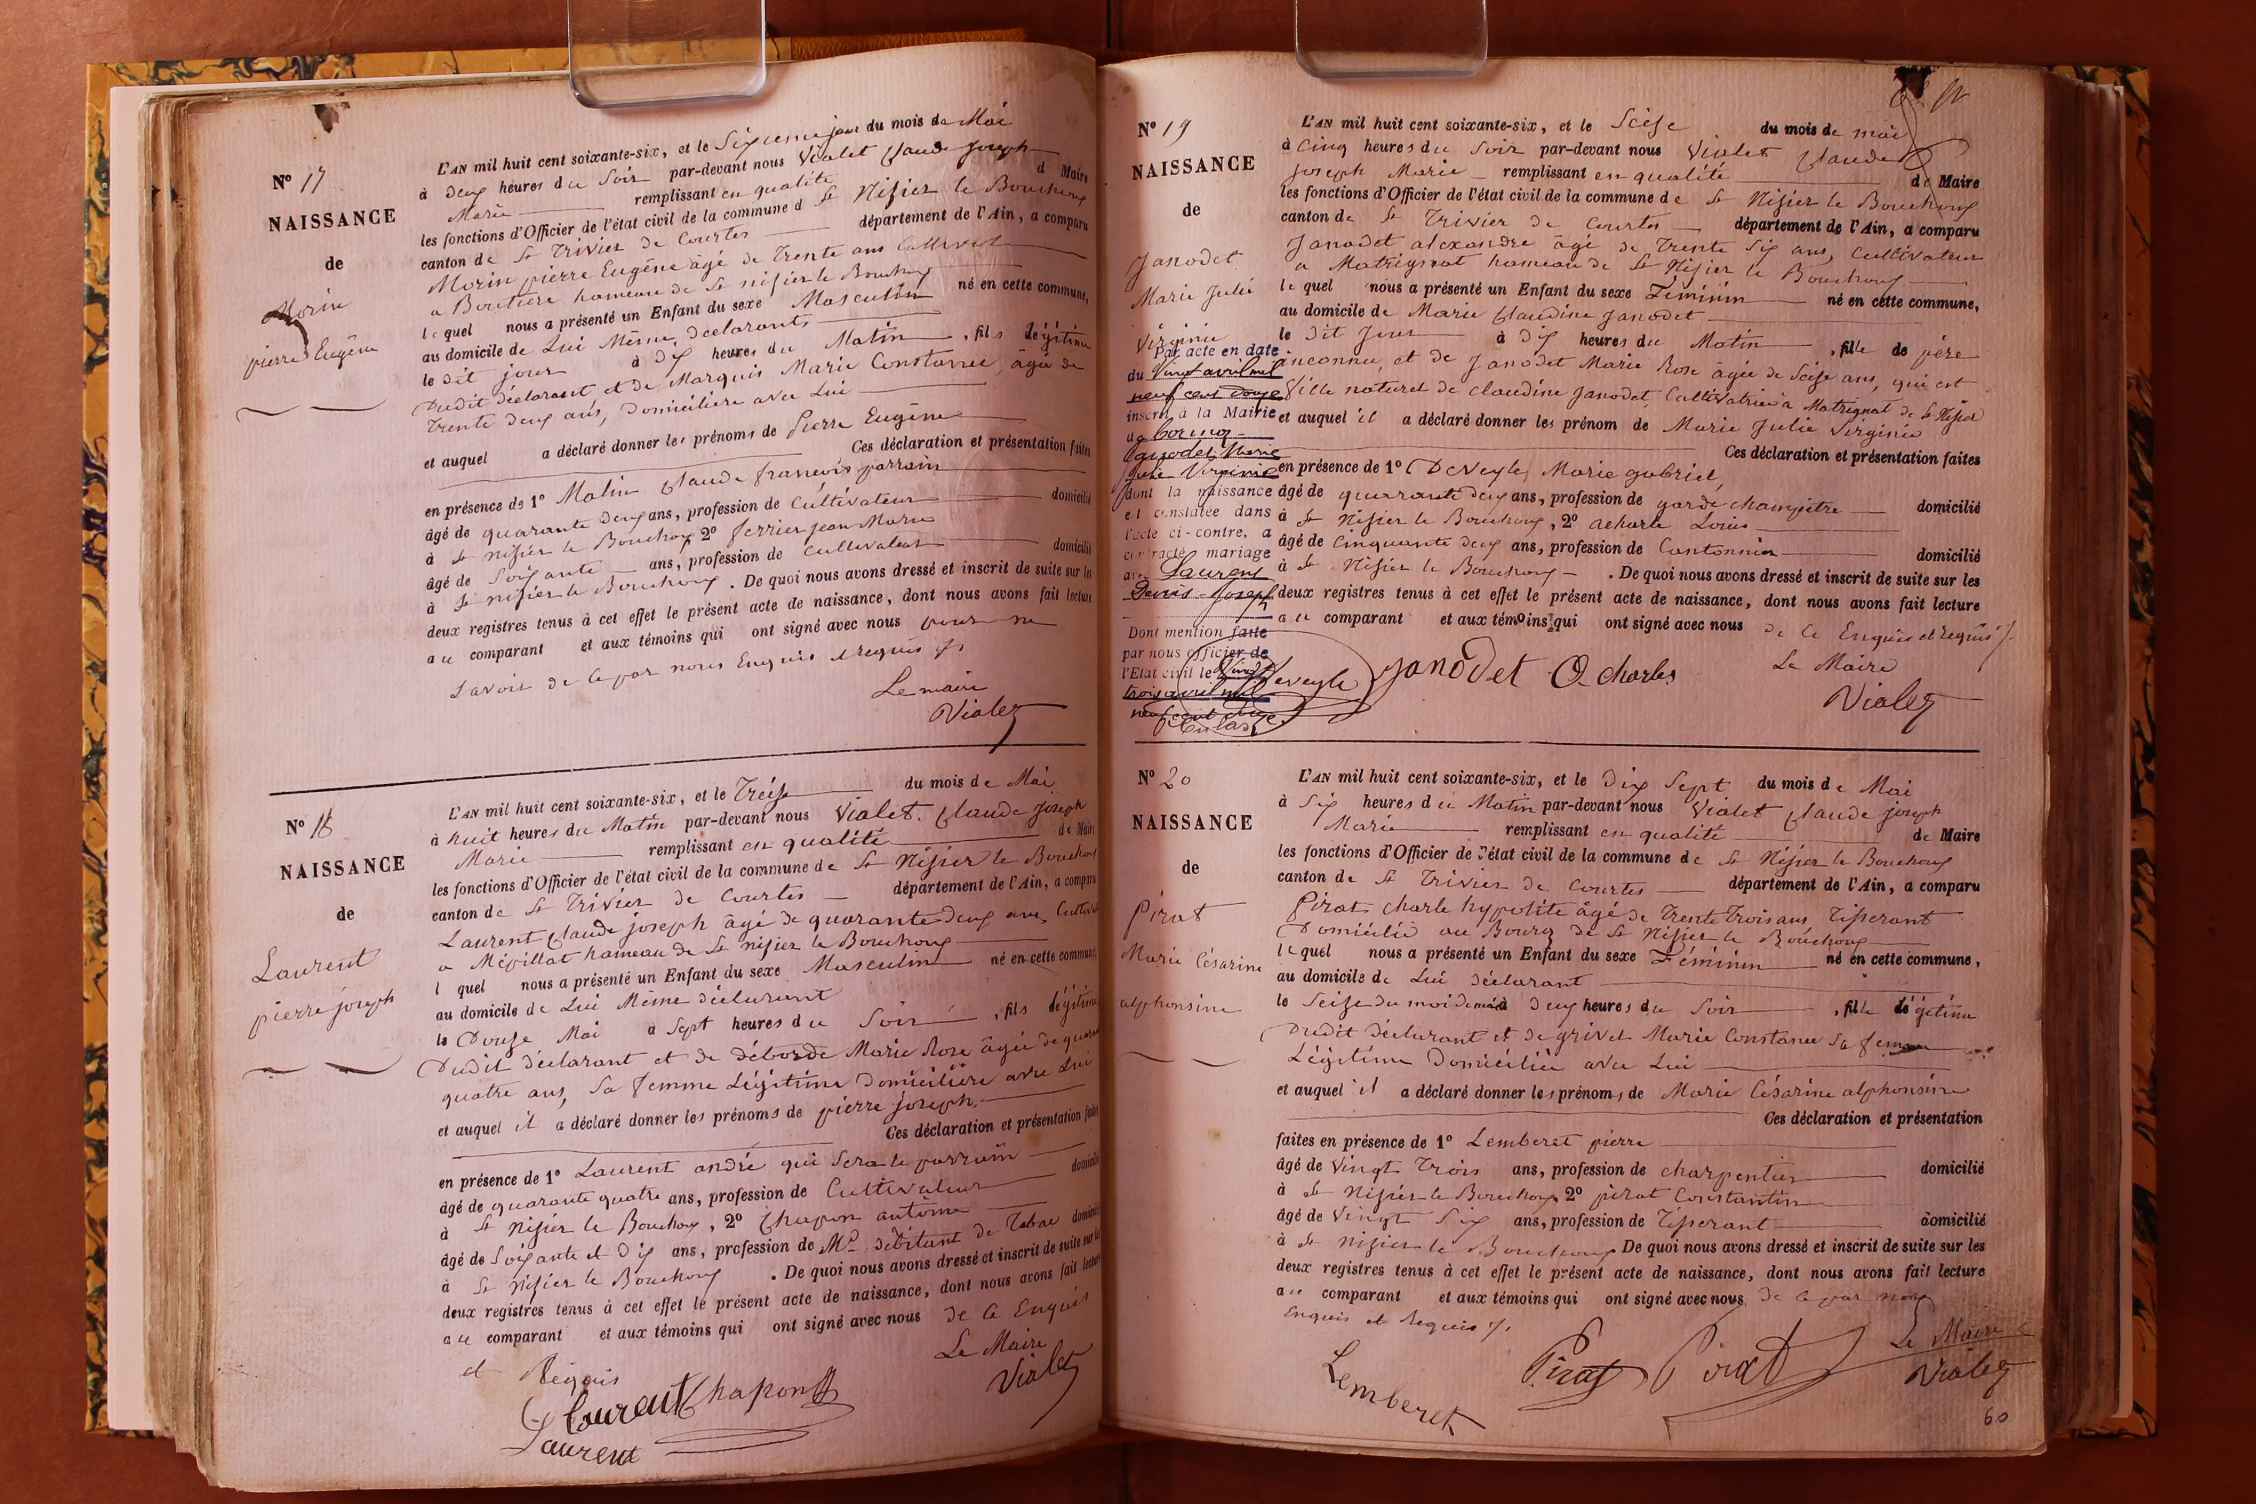 N° 17
NAISSANCE
de
Morin
pierre Eugêne
L'AN mil huit cent soixante-six, et le Sixieme jour du mois de Mai
à deux heures du Soir par-devant nous Vialet Claude Joseph
Marie remplissant en qualité d Maire
les fonctions d'Officier de l'état civil de la commune d St Nisier le Bouchoux
canton de St Trivier de Courtes département de l'Ain, a comparu
Morin pierre Eugêne âgé de Trente ans Cultivat
a Boutiere hameau de St nisier le Bouchoux
lequel nous a présenté un Enfant du sexe Masculin né en cette commune,
au domicile de Lui Même, déclarants
le dit jour à dix heures du Matin, fils légitime
Dudit déclarant et de Marquis Marie Constance, âgée de
Trente deux ans, Domiciliere avec Lui
et auquel a déclaré donner les prénoms de Pierre Eugêne
Ces déclaration et présentation faites
en présence de 1° Matin Claude francois parrain
âgé de quarante deux ans, profession de Cultivateur domicilié
à St nisier le Bouchoux 2° ferrier jean Marie
âgé de Soixante ans, profession de Cultivateur domicilié
à St nisier le Bouchoux. De quoi nous avons dressé et inscrit de suite sur les
deux registres tenus à cet effet le présent acte de naissance, dont nous avons fait lecture
au comparant et aux témoins qui ont signé avec nous pour ne
Savoir de ce par nous Enquis et requis
Le maire
Vialet
N° 18
NAISSANCE
de
Laurent
pierre joseph
L'AN mil huit cent soixante-six, et le Treize du mois de Mai
à huit heures du Matin par-devant nous Vialet Claude Joseph
Marie remplissant en qualité de Maire
les fonctions d'Officier de l'état civil de la commune de St Nisier le Bouchoux
canton de St Trivier de Courtes département de l'Ain, a comparu
Laurent Claude joseph âgé de quarante deux ans, Cultiva
a Mépillat hameau de St nisier le Bouchoux
l quel nous a présenté un Enfant du sexe Masculin né en cette commune,
au domicile de Lui Même déclarant
le Douze Mai à Sept heures du Soir, fils légitime
Dudit déclarant et de déborde Marie Rose âgée de quara
quatre ans, Sa femme Légitime Domiciliére avec Lui
et auquel il a déclaré donner les prénoms de pierre joseph.
Ces déclaration et présentation faites
en présence de 1° Laurent andré qui Sera le parrain
âgé de quarante quatre ans, profession de Cultivateur domicilié
à St Nisier le Bouchoux, 2° Chapon antoine
âgé de Soixante et Dix ans, profession de Md débitant de Tabac domicilié
à St Nisier le Bouchoux. De quoi nous avons dressé et inscrit de suite sur les
deux registres tenus à cet effet le présent acte de naissance, dont nous avons fait lecture
au comparant et aux témoins qui ont signé avec nous de ce Enquis
et Réquis
Le Maire
Laurent Chapon Vialet
Laurent
N° 19
NAISSANCE
de
Janodet
Marie Julie
Virginie
Par acte en date
du Vingt avril mil
neuf cent douze
inscrit à la Mairie
de
Janodet Marie
Julie Virginie
dont la naissance
est constatée dans
l'acte ci-contre, a
contracté mariage
avec Laurent
Denis-Joseph
Dont mention faite
par nous officier de
l'Etat civil le Vingt
trois avril mil
neuf cent douze.
L'AN mil huit cent soixante-six, et le Seize du mois de mai
à Cinq heures du Soir par-devant nous Vialet Claude
Joseph Marie remplissant en qualité de Maire
les fonctions d'Officier de l'état civil de la commune de St Nisier le Bouchoux
canton de St Trivier de Courtes département de l'Ain, a comparu
Janodet alexandre âgé de Trente Six ans, Cultivateur
a Matrignat hameau de St Nisier le Bouchoux
lequel nous a présenté un Enfant du sexe Féminin né en cette commune,
au domicile de Marie Claudine Janodet
le dit Jour à dix heures du Matin, fille de père
inconnu, et de Janodet Marie Rose âgée de Seize ans, qui est
fille naturel de Claudine Janodet, Cultivatrice a Matrignat de St Nisier
et auquel il a déclaré donner les prénom de Marie Julie Virginie
Ces déclaration et présentation faites
en présence de 1° Deveyle Marie gabriel,
âgé de quarante deux ans, profession de garde champêtre domicilié
à St Nisier le Bouchoux, 2° acharle Louis
âgé de Cinquante deux ans, profession de Cantonnier domicilié
à St Nisier le Bouchoux. De quoi nous avons dressé et inscrit de suite sur les
deux registres tenus à cet effet le présent acte de naissance, dont nous avons fait lecture
au comparant et aux témoins qui ont signé avec nous de ce Enquis et requis
Le Maire
Deveyle Janodet Charles Vialet
N° 20
NAISSANCE
de
Pirat
Marie Césarine
alphonsine
L'AN mil huit cent soixante-six, et le Dix Sept du mois de Mai
à Six heures du Matin par-devant nous Vialet Claude joseph
Marie remplissant en qualité de Maire
les fonctions d'Officier de l'état civil de la commune de St Nisier le Bouchoux
canton de St Trivier de Courtes département de l'Ain, a comparu
Pirat charle hypolite âgé de Trente Trois ans, Tisserant
Domicilié au Bourg de St Nisier le Bouchoux
lequel nous a présenté un Enfant du sexe Féminin né en cette commune,
au domicile de Lui déclarant
le Seize du moi de mai à deux heures du Soir, fille légitime
Dudit déclarant et de grivet Marie Constance Sa femme
Légitime Domiciliée avec Lui
et auquel il a déclaré donner les prénoms de Marie Césarine alphonsine
Ces déclaration et présentation
faites en présence de 1° Lemberet pierre
âgé de Vingt Trois ans, profession de charpentier domicilié
à St Nisier le Bouchoux 2° pirat Constantin
âgé de Vingt Six ans, profession de Tisserant domicilié
à St nisier le Bouchoux De quoi nous avons dressé et inscrit de suite sur les
deux registres tenus à cet effet le présent acte de naissance, dont nous avons fait lecture
au comparant et aux témoins qui ont signé avec nous de ce par nous
Enquis et Requis
Le Maire
Lemberet Pirat Pirat Vialet
60